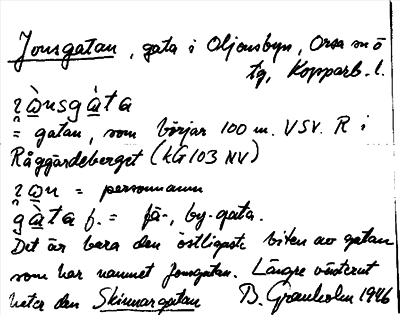 Jonsgatan, gata i Oljonsbyn, Orsa sn ö
tg, Kopparb. l.
= gatan, som börjar 100 m. VSV. R i
Råggärdeberget (kG103 NV)
= personnamn
gàta f. = fä-, by-gata.
Det är bara den östligaste biten av gatan
som har namnet Jonsgatan. Längre västerut
heter den Skinnargatan B. Granholm 1946